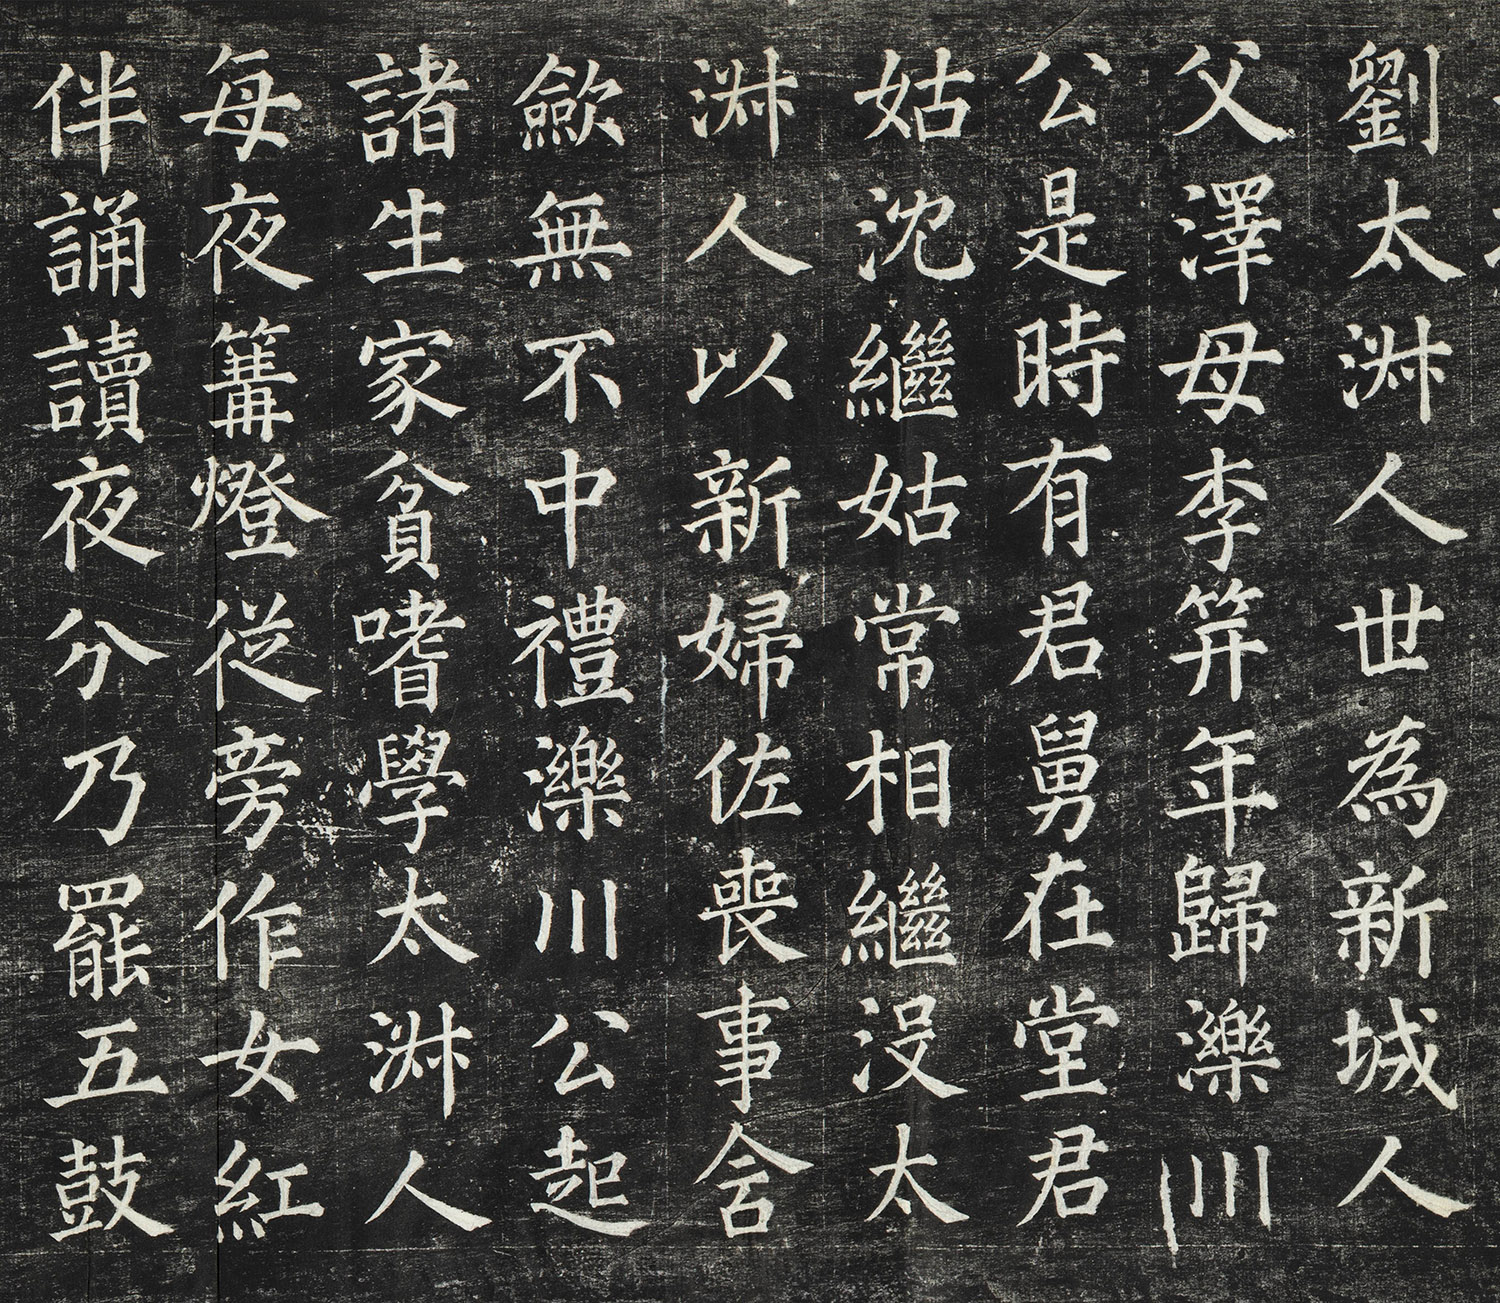 劉太淋人世為新城人
父澤母李笄年歸濼川
公是時有君舅在堂君
姑沈繼姑常相繼沒太
淋人以新婦佐喪事含
歛無不中禮濼川公起
諸生家貧嗜學太淋人
每夜篝燈従旁作女紅
伴誦讀夜分乃罷五鼓